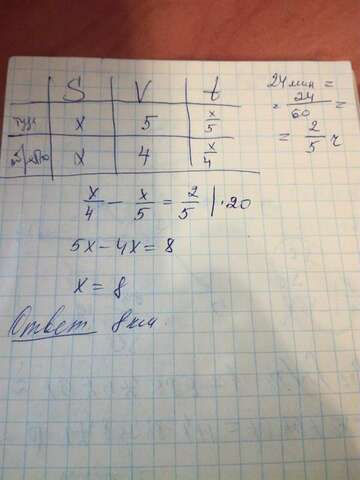 S V t
туда x 5 x/5
x 4 x/4
24 мин =
= 24/60 =
= 2/5 ч
x/4 - x/5 = 2/5 | · 20
5x - 4x = 8
x = 8
Ответ 8 км.